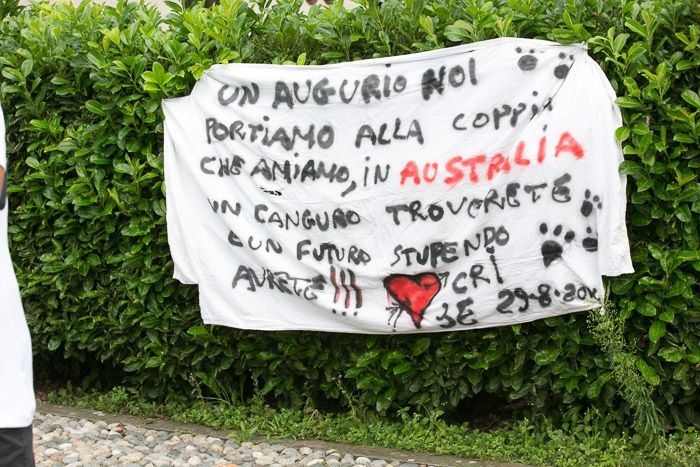 UN AUGURIO NOI
PORTIAMO ALLA COPPIA
CHE AMIAMO, IN AUSTRALIA
UN CANGURO TROVERETE
E UN FUTURO STUPENDO
AVRETE!!! CRI
SE 29-8-